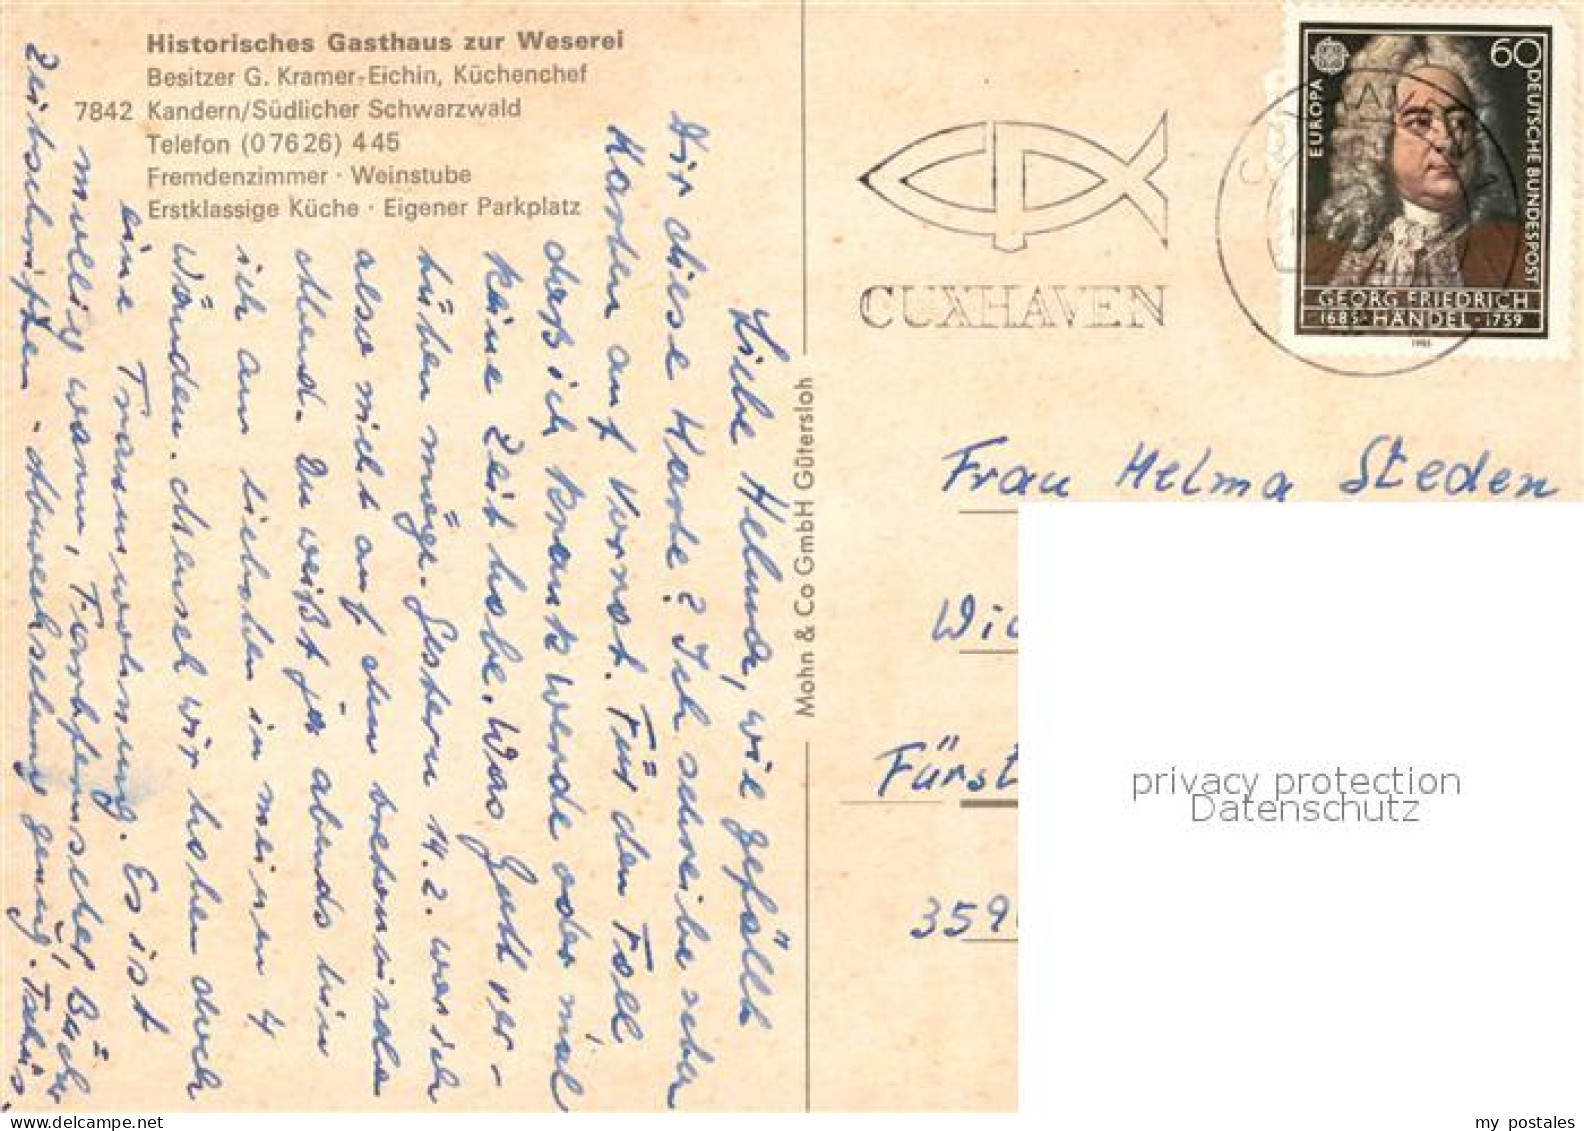 Historisches Gasthaus zur Weserei
Besitzer G. Kramer-Eichin, Küchenchef
7842 Kandern/Südlicher Schwarzwald
Telefon (07626) 445
Fremdenzimmer · Weinstube
Erstklassige Küche · Eigener Parkplatz
Liebe Helma, wie gefällt
Dir diese Karte? Ich schreibe schon
Karten auf Vorrat. Für den Fall
daß ich krank werde oder mal
keine Zeit habe. Was Gott ver-
hüten möge. Gestern 14.2. war ich
also nicht auf dem
Abend. Du weißt ja abends bin
ich am liebsten in meinen 4
Wänden. Mensch wir haben doch
eine Traumwohnung. Es ist
mollig warm, Farbfernseher, Bücher
Zeitschriften - Abwechselung genug. Tschüs.
Mohn & Co GmbH Gütersloh
CUXHAVEN
60
EUROPA
DEUTSCHE BUNDESPOST
GEORG FRIEDRICH
1685 - HÄNDEL - 1759
1985
Frau Helma Steden
Wi
Fürst
359
privacy protection
Datenschutz
my postales